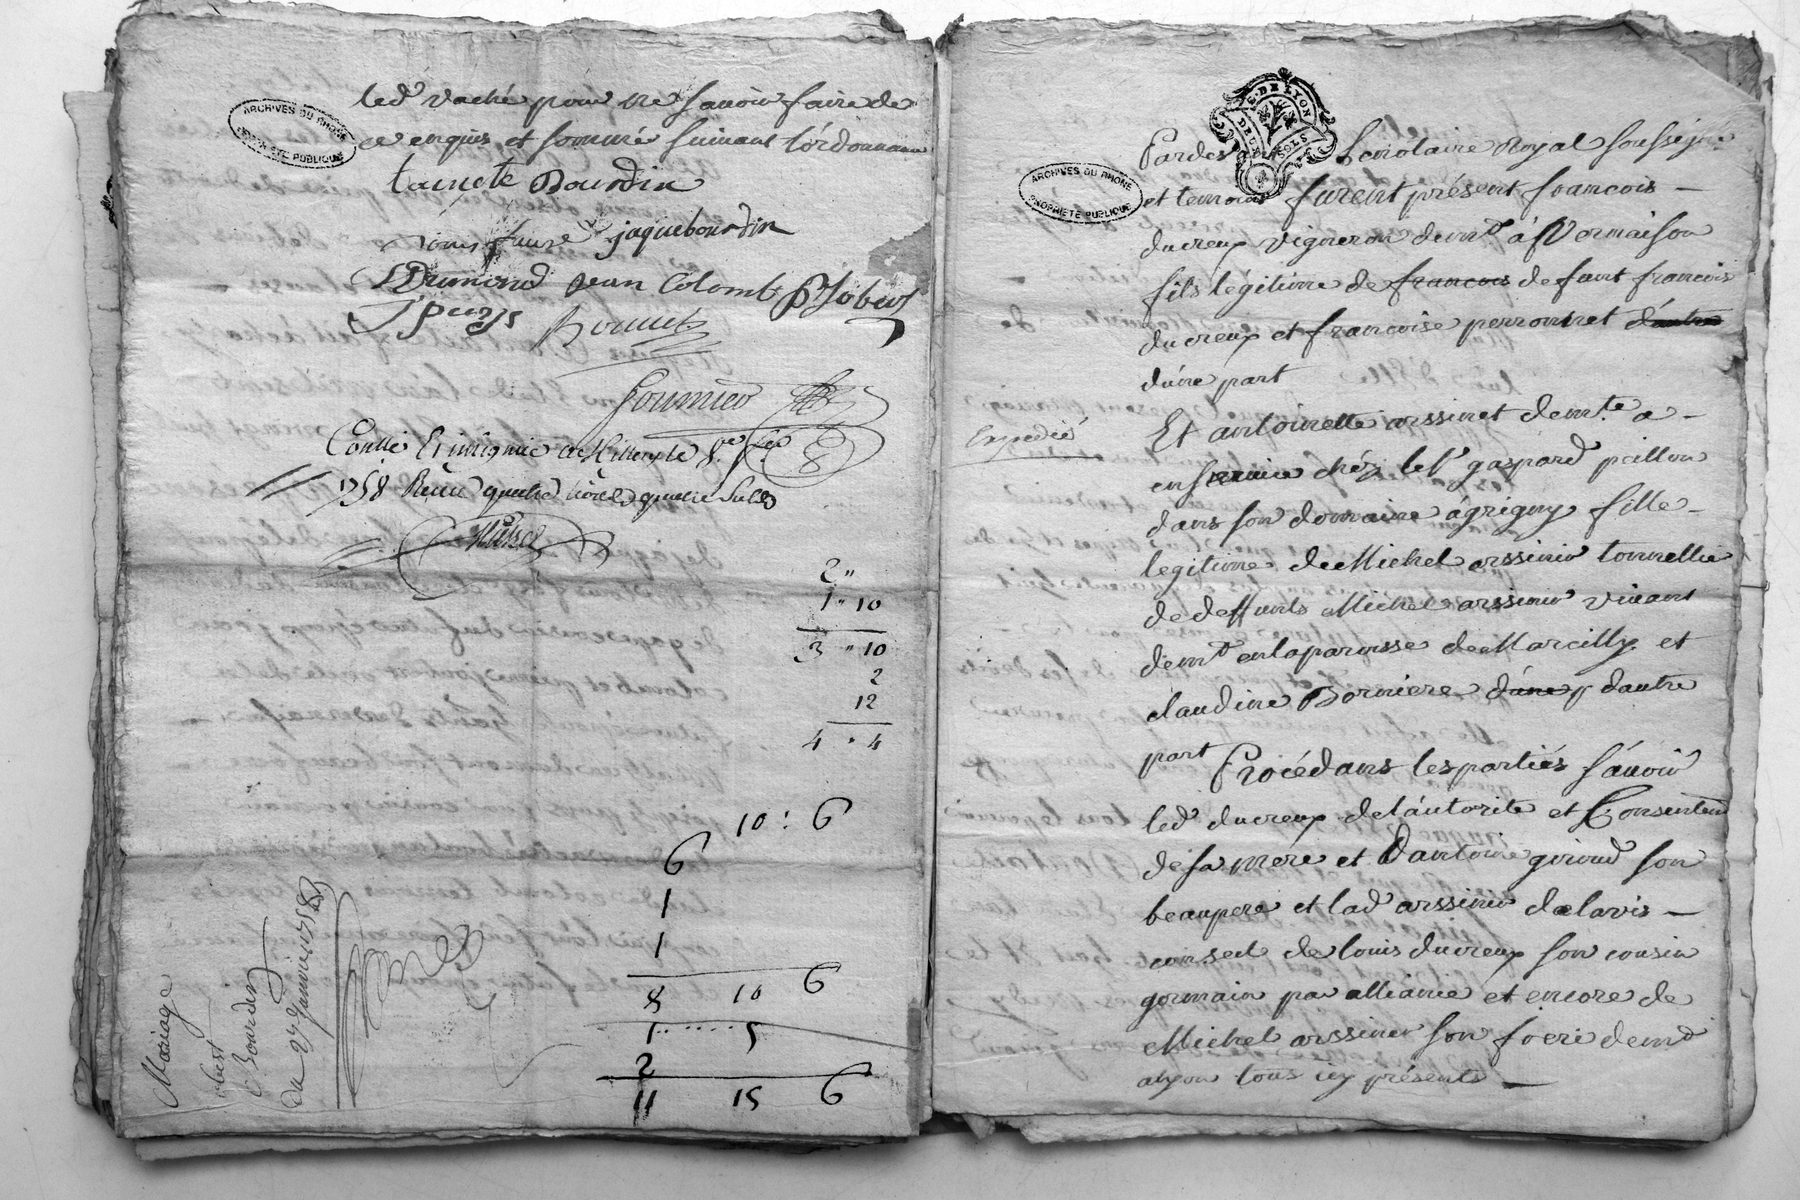 led vaché pour ne savoir faire de
ce enquis et sommé suivant l'ordonnance
Bourdin
faure jaque bourdin
Drumond Jean Colomb
ARCHIVES DU RHÔNE
PROPRIÉTÉ PUBLIQUE
Conllé le
1758 Receu quatre livres quatre sols
2 "
1 " 10
3 " 10
2
12
4 " 4
10 : 6
6
1
1
8 10 6
1 ..... 5
2
11 15 6
Mariage
obert
Bourdin
du 27e janvier 1758
G. DE LYON
DEUX SOLS
ARCHIVES DU RHÔNE
PROPRIÉTÉ PUBLIQUE
Pardevant Le notaire Royal soussigné
et temoins furent présent francois
ducreux vigneron demt à Vormaison
fils légitime de francois defunt francois
ducreux et francoise perronnet d'autre
d'une part
Expedié
Et antoinette arssinet demte a
en service chéz le sr gaspard paillon
dans son domaine à grigny fille
legitime de Michel arssiner tonnellie
de deffunts Michel arssiner vivant
demt en la paroisse de Marcilly et
claudine Borniere d'une p dautre
part Procédans les partiés sávoir
led ducreux de l'autorite et Consentem
de sa mere et Dantoine giroud son
beaupere et lad arssiner de lavis
conseil de louis ducreux son cousin
germain par alliance et encore de
Michel arssiner son frere demt
alyon tous icy présents